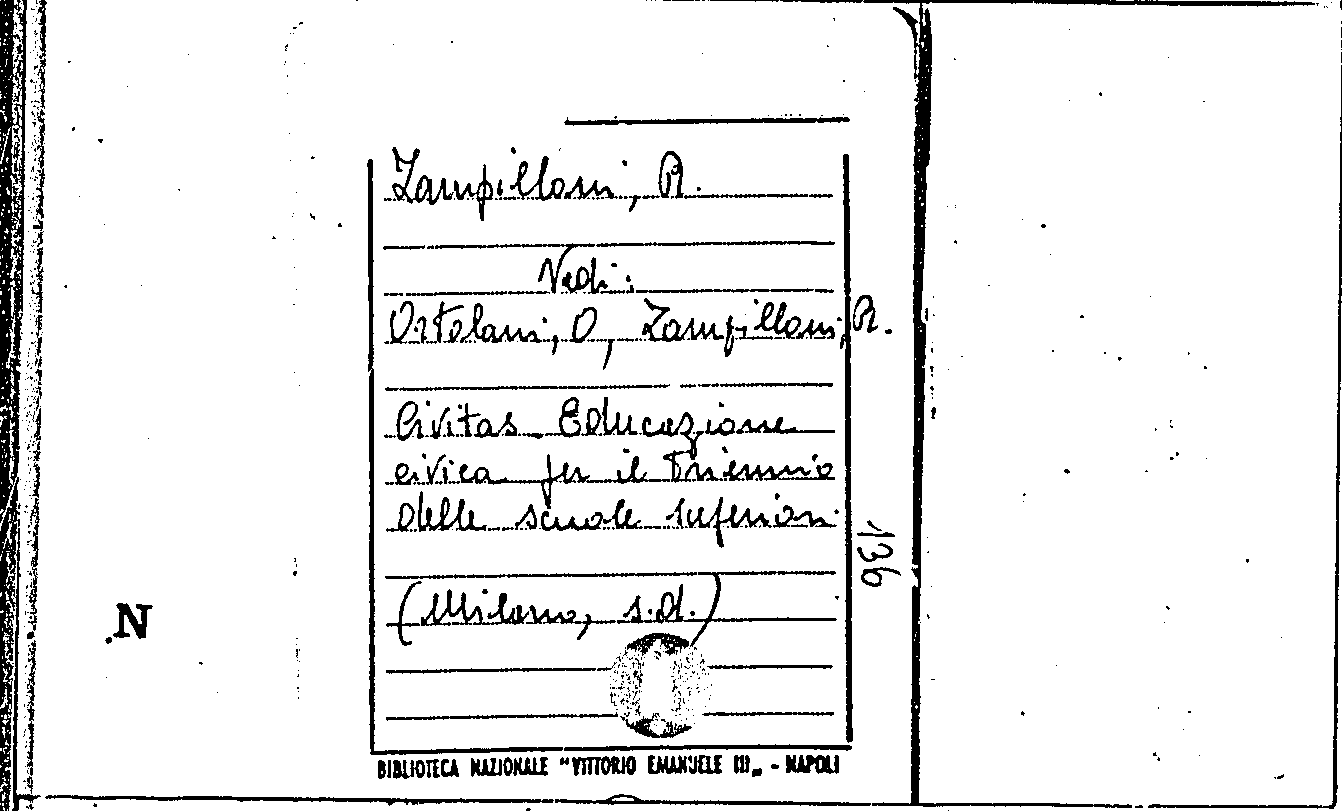 Zampilloni, R.
Vedi:
Ortolani, O, Zampilloni, R.
Civitas. Educazione
civica per il Triennio
delle scuole superiori.
(Milano, s.d.)
136
N
BIBLIOTECA NAZIONALE "VITTORIO EMANUELE III„ - NAPOLI